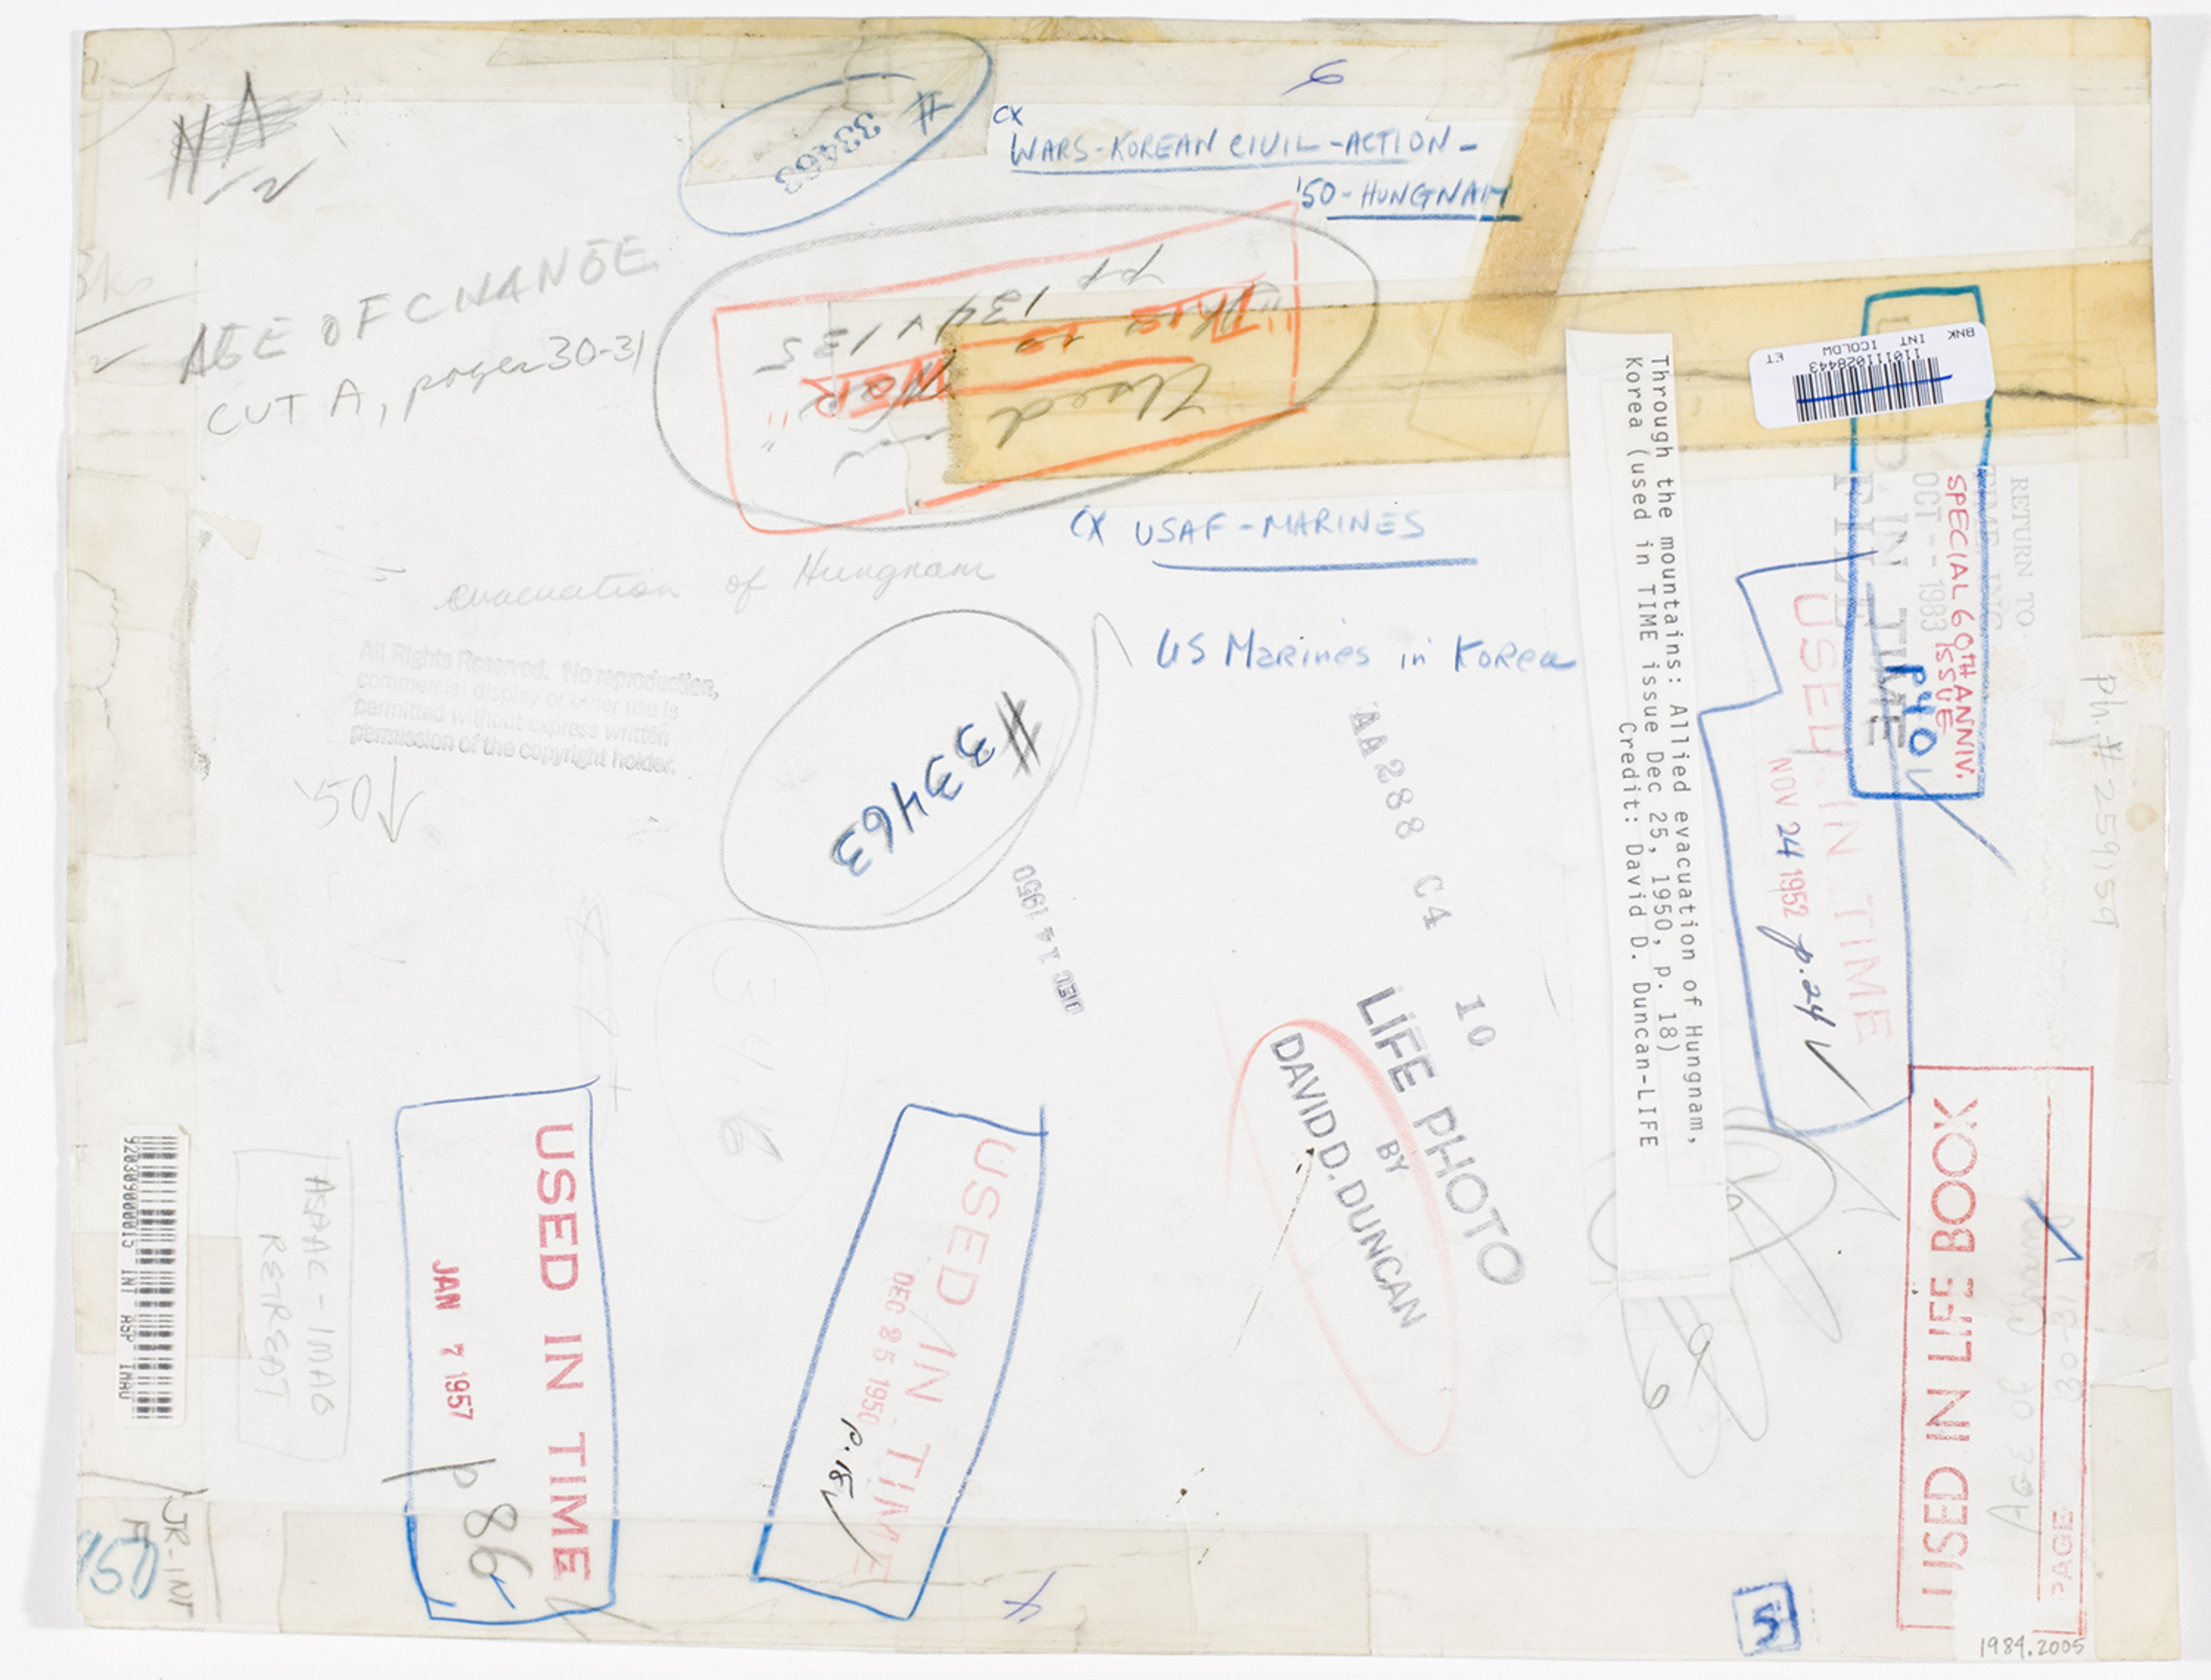 NA
2
# 33463
6
CX
WARS-KOREAN CIVIL-ACTION-
'50-HUNGNAM
AGE OF CHANGE
CUT A, pages 30-31
Used
"THIS IS
WAR"
134 + 135
CX USAF-MARINES
evacuation of Hungnam
US Marines in Korea
All Rights Reserved. No reproduction,
commercial display or other use is
permitted without express written
permission of the copyright holder.
'50
# 33463
DEC 14 1950
AA288 C4 10
LIFE PHOTO
BY
DAVID D. DUNCAN
Through the mountains: Allied evacuation of Hungnam,
Korea (used in TIME issue Dec 25, 1950, p. 18)
Credit: David D. Duncan-LIFE
11011028443
BNK INT ICOLDM ET
RETURN TO
TIME INC
FILE
SPECIAL 60TH ANNIV.
ISSUE
OCT -- 1983
USED IN TIME
P40
USED IN TIME
NOV 24 1952 p.24
Ph,# 259159
346
USED IN TIME
JAN 7 1957
p 86
USED IN TIME
DEC 25 1950
p.18
USED IN LIFE BOOK
PAGE
Age of Change
ASPAC-IMAG
RETREAT
9203090000015 INT ASP IMAU
JR-INT
1950
5
1984.2005